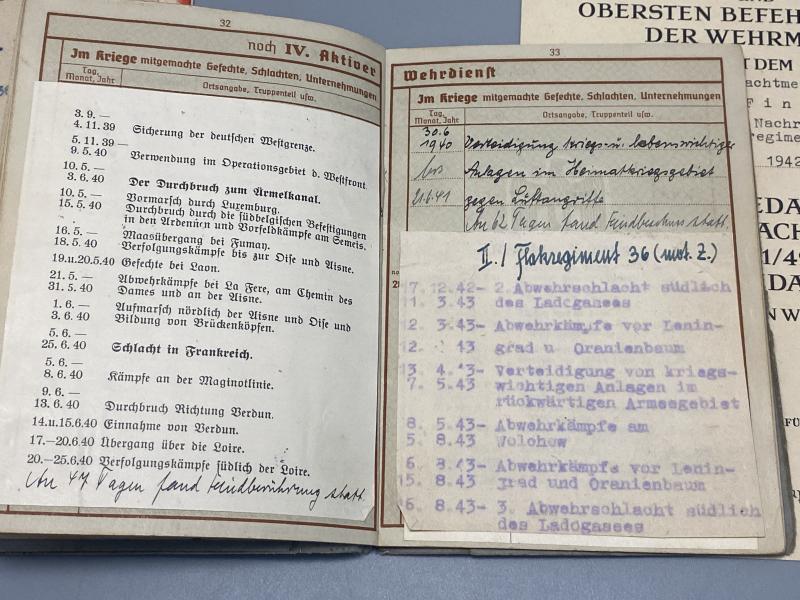 32
noch IV. Aktiver
Im Kriege mitgemachte Gefechte, Schlachten, Unternehmungen
Tag, Monat, Jahr
Ortsangabe, Truppenteil usw.
3. 9. —
4. 11. 39 Sicherung der deutschen Westgrenze.
5. 11. 39 —
9. 5. 40 Verwendung im Operationsgebiet d. Westfront.
10. 5. —
3. 6. 40 Der Durchbruch zum Ärmelkanal.
10. 5. — Vormarsch durch Luxemburg.
15. 5. 40 Durchbruch durch die südbelgischen Befestigungen
in den Ardennen und Vorfeldkämpfe am Semois.
16. 5. — Maasübergang bei Fumay.
18. 5. 40 Verfolgungskämpfe bis zur Oise und Aisne.
19.u.20.5.40 Gefechte bei Laon.
21. 5. — Abwehrkämpfe bei La Fere, am Chemin des
31. 5. 40 Dames und an der Aisne.
1. 6. — Aufmarsch nördlich der Aisne und Oise und
3. 6. 40 Bildung von Brückenköpfen.
5. 6. —
25. 6. 40 Schlacht in Frankreich.
5. 6. —
8. 6. 40 Kämpfe an der Maginotlinie.
9. 6. —
13. 6. 40 Durchbruch Richtung Verdun.
14.u.15.6.40 Einnahme von Verdun.
17.—20.6.40 Übergang über die Loire.
20.—25.6.40 Verfolgungskämpfe südlich der Loire.
An 47 Tagen fand Feindberührung statt.
33
Wehrdienst
Im Kriege mitgemachte Gefechte, Schlachten, Unternehmungen
Tag, Monat, Jahr
Ortsangabe, Truppenteil usw.
30.6
1940 Verteidigung kriegs- u. lebenswichtiger
bis Anlagen im Heimatkriegsgebiet
21.6.41 gegen Luftangriffe
An 62 Tagen fand Feindbeschuss statt.
II./Flakregiment 36 (mot. Z.)
17.12.42- 2. Abwehrschlacht südlich
11. 3.43 des Ladogasees
12. 3.43- Abwehrkämpfe vor Lenin-
12. 43 grad u Oranienbaum
13. 4.43- Verteidigung von kriegs-
7. 5.43 wichtigen Anlagen im
rückwärtigen Armeegebiet
8. 5.43- Abwehrkämpfe am
5. 8.43 Wolchow
6. 8.43- Abwehrkämpfe vor Lenin-
15. 8.43 grad und Oranienbaum
16. 8.43- 3. Abwehrschlacht südlich
des Ladogasees
OBERSTEN BEFEH
DER WEHRM
T DEM
achtme
Fin
Nachr
regime
1942
EDA
ACH
1/49
IDA
N W
FÜ